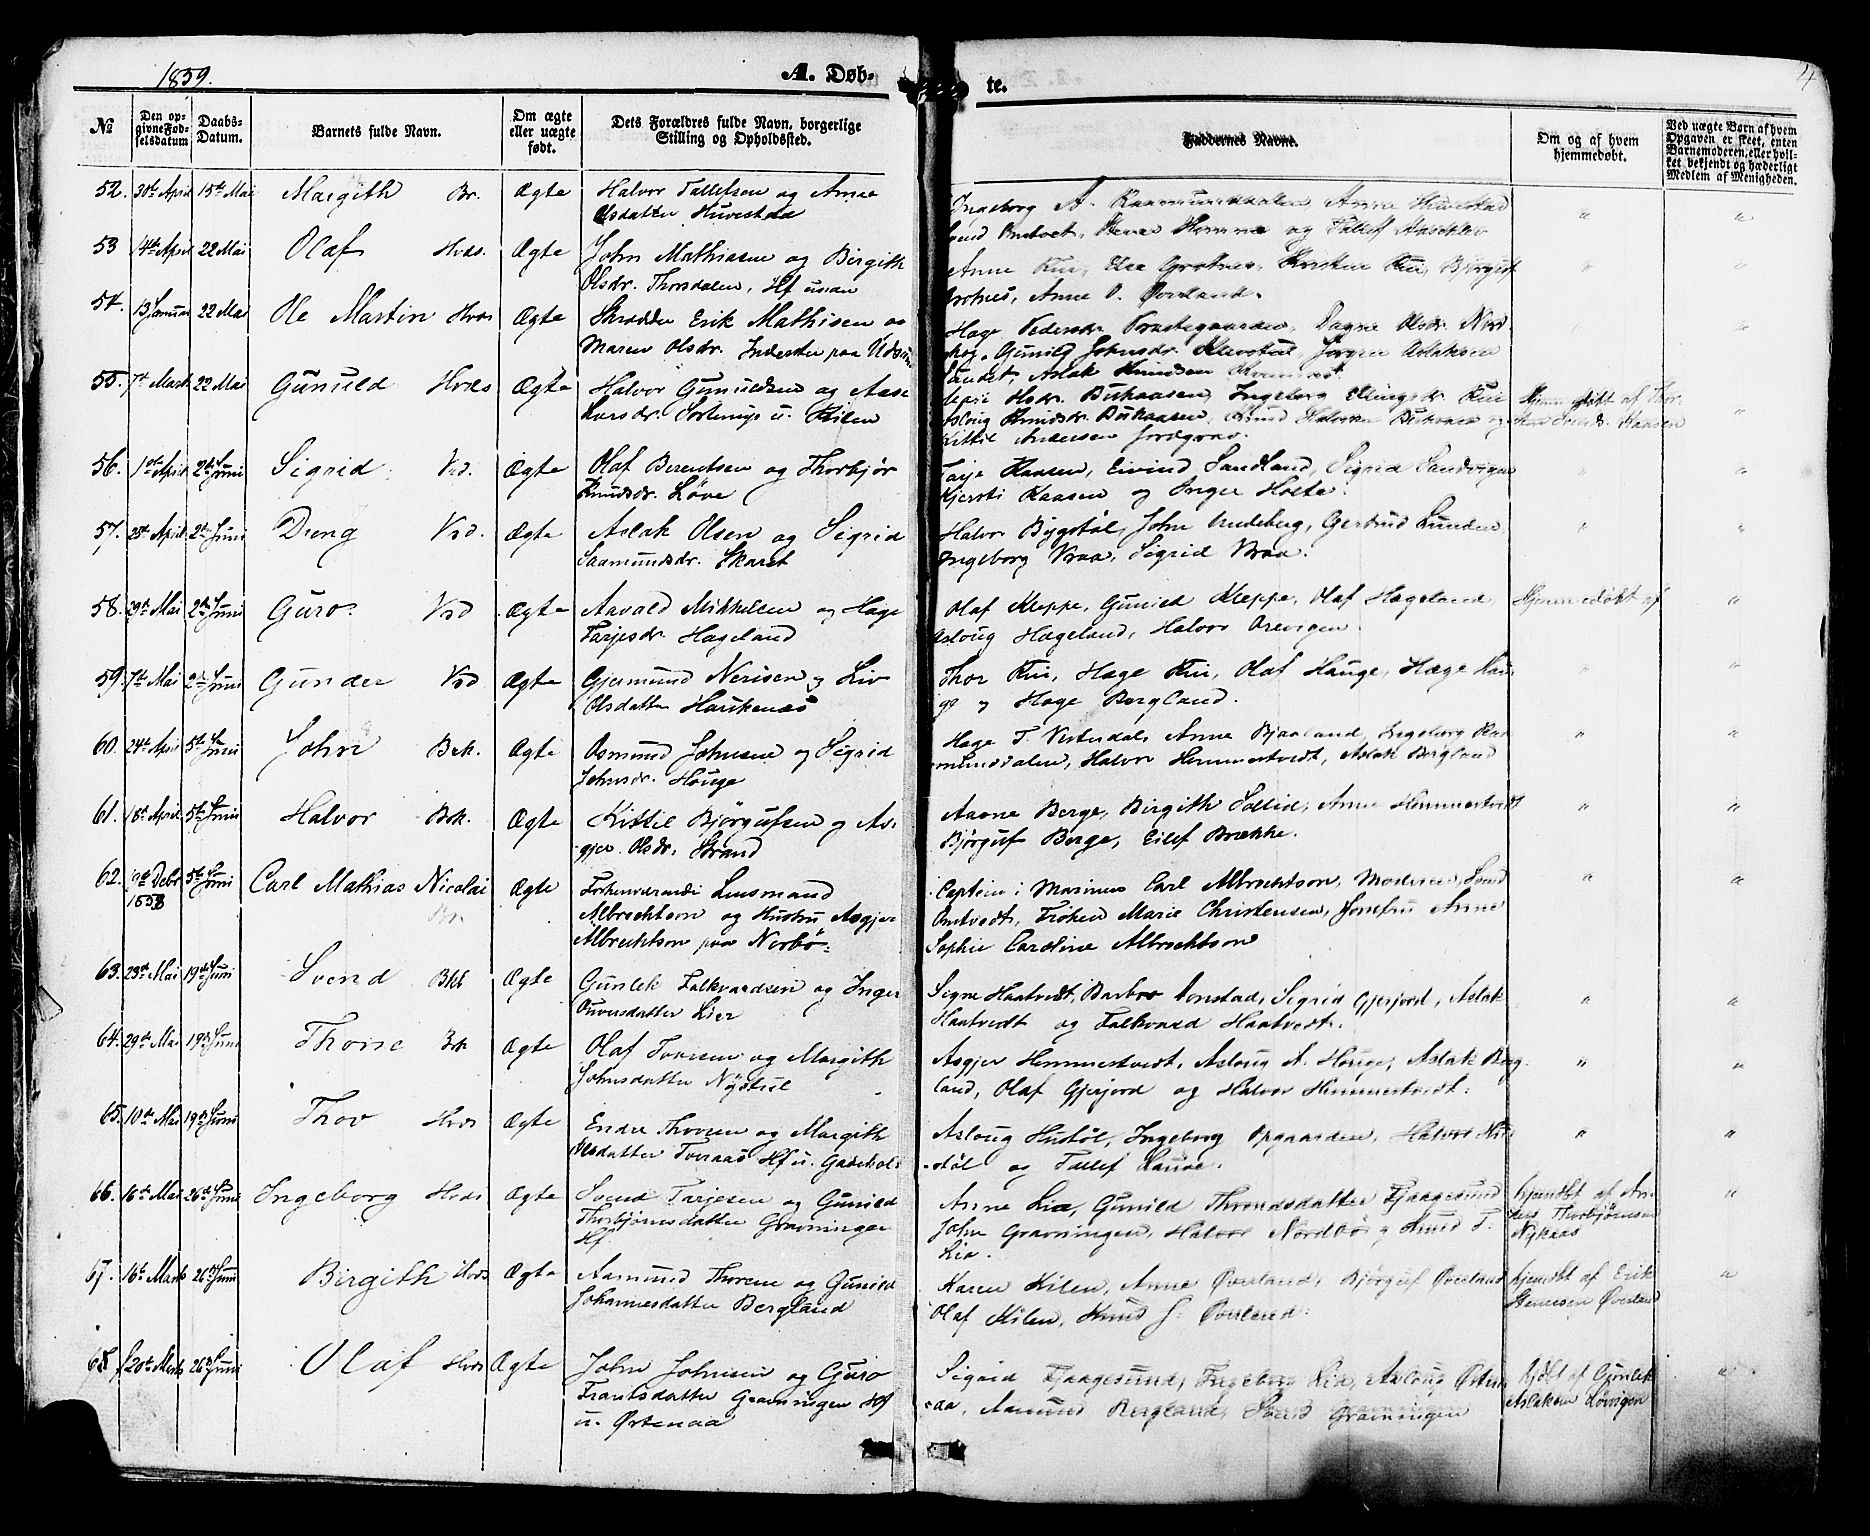 1859.
A. Døb-
te.
4
№
Den op-
givne Fød-
selsdatum
Daabs-
Datum.
Barnets fulde Navn.
Om ægte
eller uægte
født.
Dets Forældres fulde Navn, borgerlige
Stilling og Opholdssted.
Faddernes Navne.
Om og af hvem
hjemmedøbt.
Ved uægte Børn af hvem
Opgaven er skeet, enten
Barnemoderen, eller hvil-
ket bekjendt og hæderligt
Medlem af Menigheden.
52. 30te April 15de Mai Margith Br. Ægte Halvor Tallefsen og Anne
Olsdatter Huvestad
Ingeborg A. Raamunddalen Anne Huvestad
Svend Omtvet, Hemma og Tallef
53 14de April 22 Mai Olaf Hvds. Ægte John Mathiasen og Birgith
Olsdr. Thorsdalen, Hf
Anne Rui, Else Grotnes, Kristen Rui, Bjørguf
Grotnes, Anne O. Øverland.
54. 13 Januar 22 Mai Ole Martin Hvds Ægte Skrædder Erik Mathisen og
Maren Olsdr. Inderster paa
Hage Pedersdr. Præstegaarden, Dagne Olsdr. Nord-
skog, Gunild Johnsdr. Jørgen Aslaksen
Sandet, Aslak Knudsen
55. 7de Marts 22 Mai Gunuld Hvds Ægte Halvor Gunuldsen og Aase
Iversdr. u. Kilen
Hsdr. Buskaasen, Ingeborg Ellingsdr. Rui
Asloug Knudsdr. Buskaasen, Knud Halvorsen og
Kittil Andersen Jordgrav.
Hjemmedøbt af Thor-
56. 1ste April 2den Juni Sigrid Vrd. Ægte Olaf Berentsen og Thorbjør
Knudsdr. Løve
Tarje Kaasen, Eivind Sandland, Sigrid Sandvigen
Kjersti Kaasen og Inger Holte.
57. 28de April 2den Juni Dreng Vrd. Ægte Aslak Olsen og Sigrid
Saamundsdr. Skaret
Halvor Bygstøl, John Gertrud Lunden
Ingeborg Vraa, Sigrid Vraa.
58. 29de Mai 2den Juni Guro. Vrd Ægte Aavald Mikkelsen og Hage
Tarjesdr. Hageland
Olaf Kleppe, Gunild Kleppe, Olaf Hageland,
Asloug Hægeland, Halvor Orevigen.
Hjemmedøbt af
59. 7de Mai 2den Juni Gunder Vrd Ægte Gjermund Nerisen og Liv
Olsdatter Haukenæs
Thor Rui, Hæge Rui, Olaf Hauge, Hæge Hau-
ge og Hage Bergland.
60. 24de April 5te Juni John Brk. Ægte Osmund Johnsen og Sigrid
Johnsdr. Houge
Hage T. Vesterdal, Anne Bjaaland, Ingeborg Raa-
munddalen, Halvor Hemmestvedt, Aslak Bergland
61. 18de April 5te Juni Halvor Brk. Ægte Kittel Bjørgufsen og As-
gjer Olsdr. Strand
Aanne Berge, Birgith Sollid, Anne Hemmestvedt
Bjørguf Berge, Eilef Brække.
62. Debr 1858 5te Juni Carl Mathias Nicolai Br. Ægte Forhenværende Lensmand
Albrechtson og Hustru Asgjer
Albrechtson paa Norbø.
Captein i Marinen Carl Albrechtson, Moderen, Svend
Omtvedt, Frøken Marie Christensen, Jomfru Anne
Sophie Caroline Albrechtson
63. 23de Mai 19de Juni Svend Brk Ægte Gunlek Falkvardsen og Inger
Ouversdatter Lier
Signe Haatvedt, Barbro Aonstad, Sigrid Gjerjord, Aslak
Haatvedt og Falkvard Haatvedt.
64. 29de Mai 19de Juni Thone Brk Ægte Olaf Tovesen og Margith
Johnsdatter Nystuel
Asgjer Hemmestvedt, Asloug A. Houge, Aslak Berg-
land, Olaf Gjerjord og Halvor Hemmestvedt.
65. 10de Mai 19de Juni Thov Hvds Ægte Endre Thovsen og Margith
Olsdatter Tveraas Hf u.
Asloug Hustøl, Ingeborg Opgaarden, Halvor Hu-
støl og Tallef
66. 16de Mai 26de Juni Ingeborg Hvds Ægte Svend Tarjesen og Gunild
Thorbjørnsdatter Gravningen
Hf
Anne Lia, Gunild Throndsdatter Fjaagesund
John Gravningen, Halvor Nordbø og Knud T.
Lia.
hjemdbt af An-
ders Thorbjørnsen
Nykaas
67. 16de Marts 26de Juni Birgith Hvds Ægte Aasmund Thorsen og Gunild
Johannesdatter Bergland
Karen Kilen, Anne Øverland, Bjørguf Øverland
Olaf Kilen, Knud J. Øverland.
hjemdbt af Erik
Stenersen Øverland
68. 20de Marts 26de Juni Olaf Hvds Ægte John Johnsen og Guro
Frantsdatter Gravningen Hf
u. Østenaa
Sigrid Fjaagesund, Ingeborg Lia, Aslaug Østen-
aa, Aasmund Bergland, Svend Gravningen
hjdbt af Gunlek
Aslaksen Løvigen